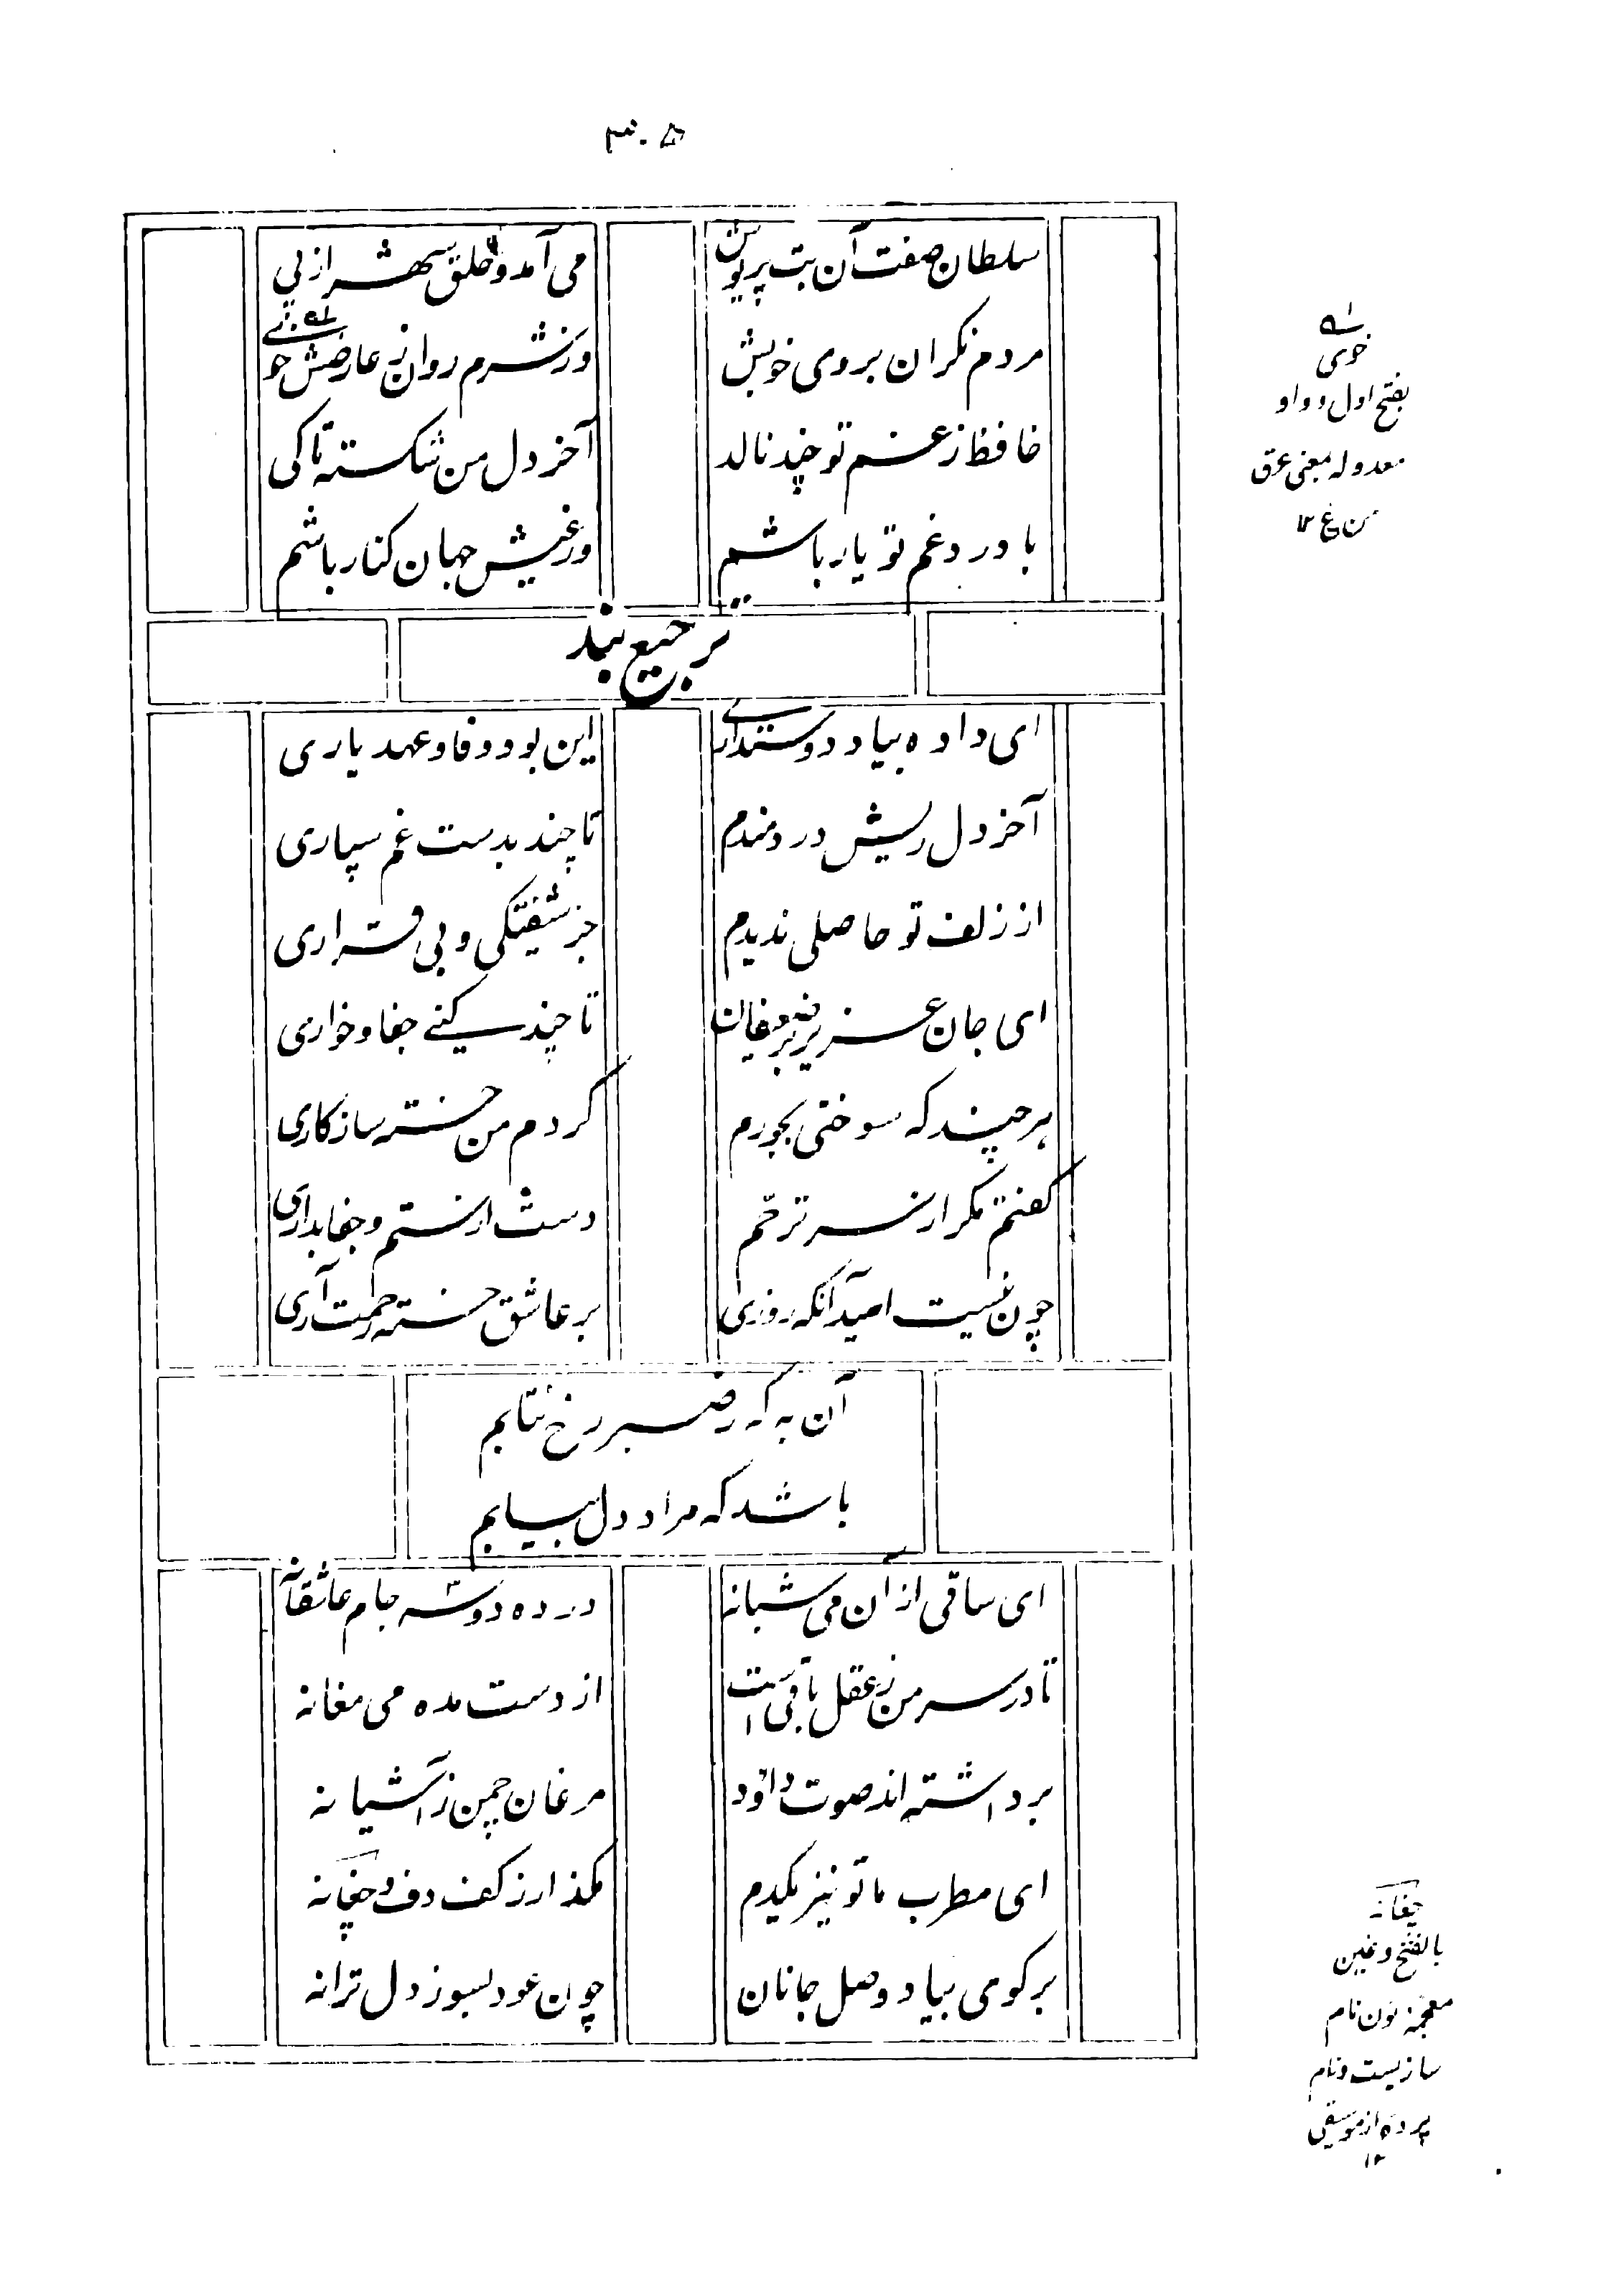 ۳۰۵
سلطان صفت آن بت پریوش
می آمد و خلق شهر از پی
مردم نگران بروی خوبش
وز شرم روان ز عارضش خوی
حافظ ز غم تو چند نالد
آخر دل من شکسته تا کی
با درد غم تو یار باشم
وز عیش جهان کنار باشم
ترجیع بند
ای داده بباد دوستداری
این بود وفا و عهد یاری
آخر دل ریش دردمندم
تا چند بدست غم سپاری
از زلف تو حاصلی ندیدم
جز شیفتگی و بی قراری
ای جان عزیز بر ضعیفان
تا چند کنی جفا و خواری
هر چند که سوختی بجورم
کردم من خسته سازکاری
گفتم مگر از سر ترحم
دست از ستم و جفا بداری
چون نیست امید آنکه روزی
بر عاشق خسته رحمت آری
آن به که ز صبر رخ نتابم
باشد که مراد دل بیابم
ای ساقی از آن می شبانه
در ده دو سه جام عاشقانه
تا در سر من ز عقل باقی است
از دست مده می مغانه
برداشته اند صوت داؤد
مرغان چمن ز آشیانه
ای مطرب ما تو نیز یکدم
مگذار ز کف دف و چغانه
بر گوی بیاد وصل جانان
چون عود بسوز دل ترانه
خوی
بفتح اول و واو
معدوله بمعنی عرق
من غ ۱۲
چغانه
بالفتح و غین
معجمه و نون نام
سازیست و نام
پرده از موسیقی
۱۲